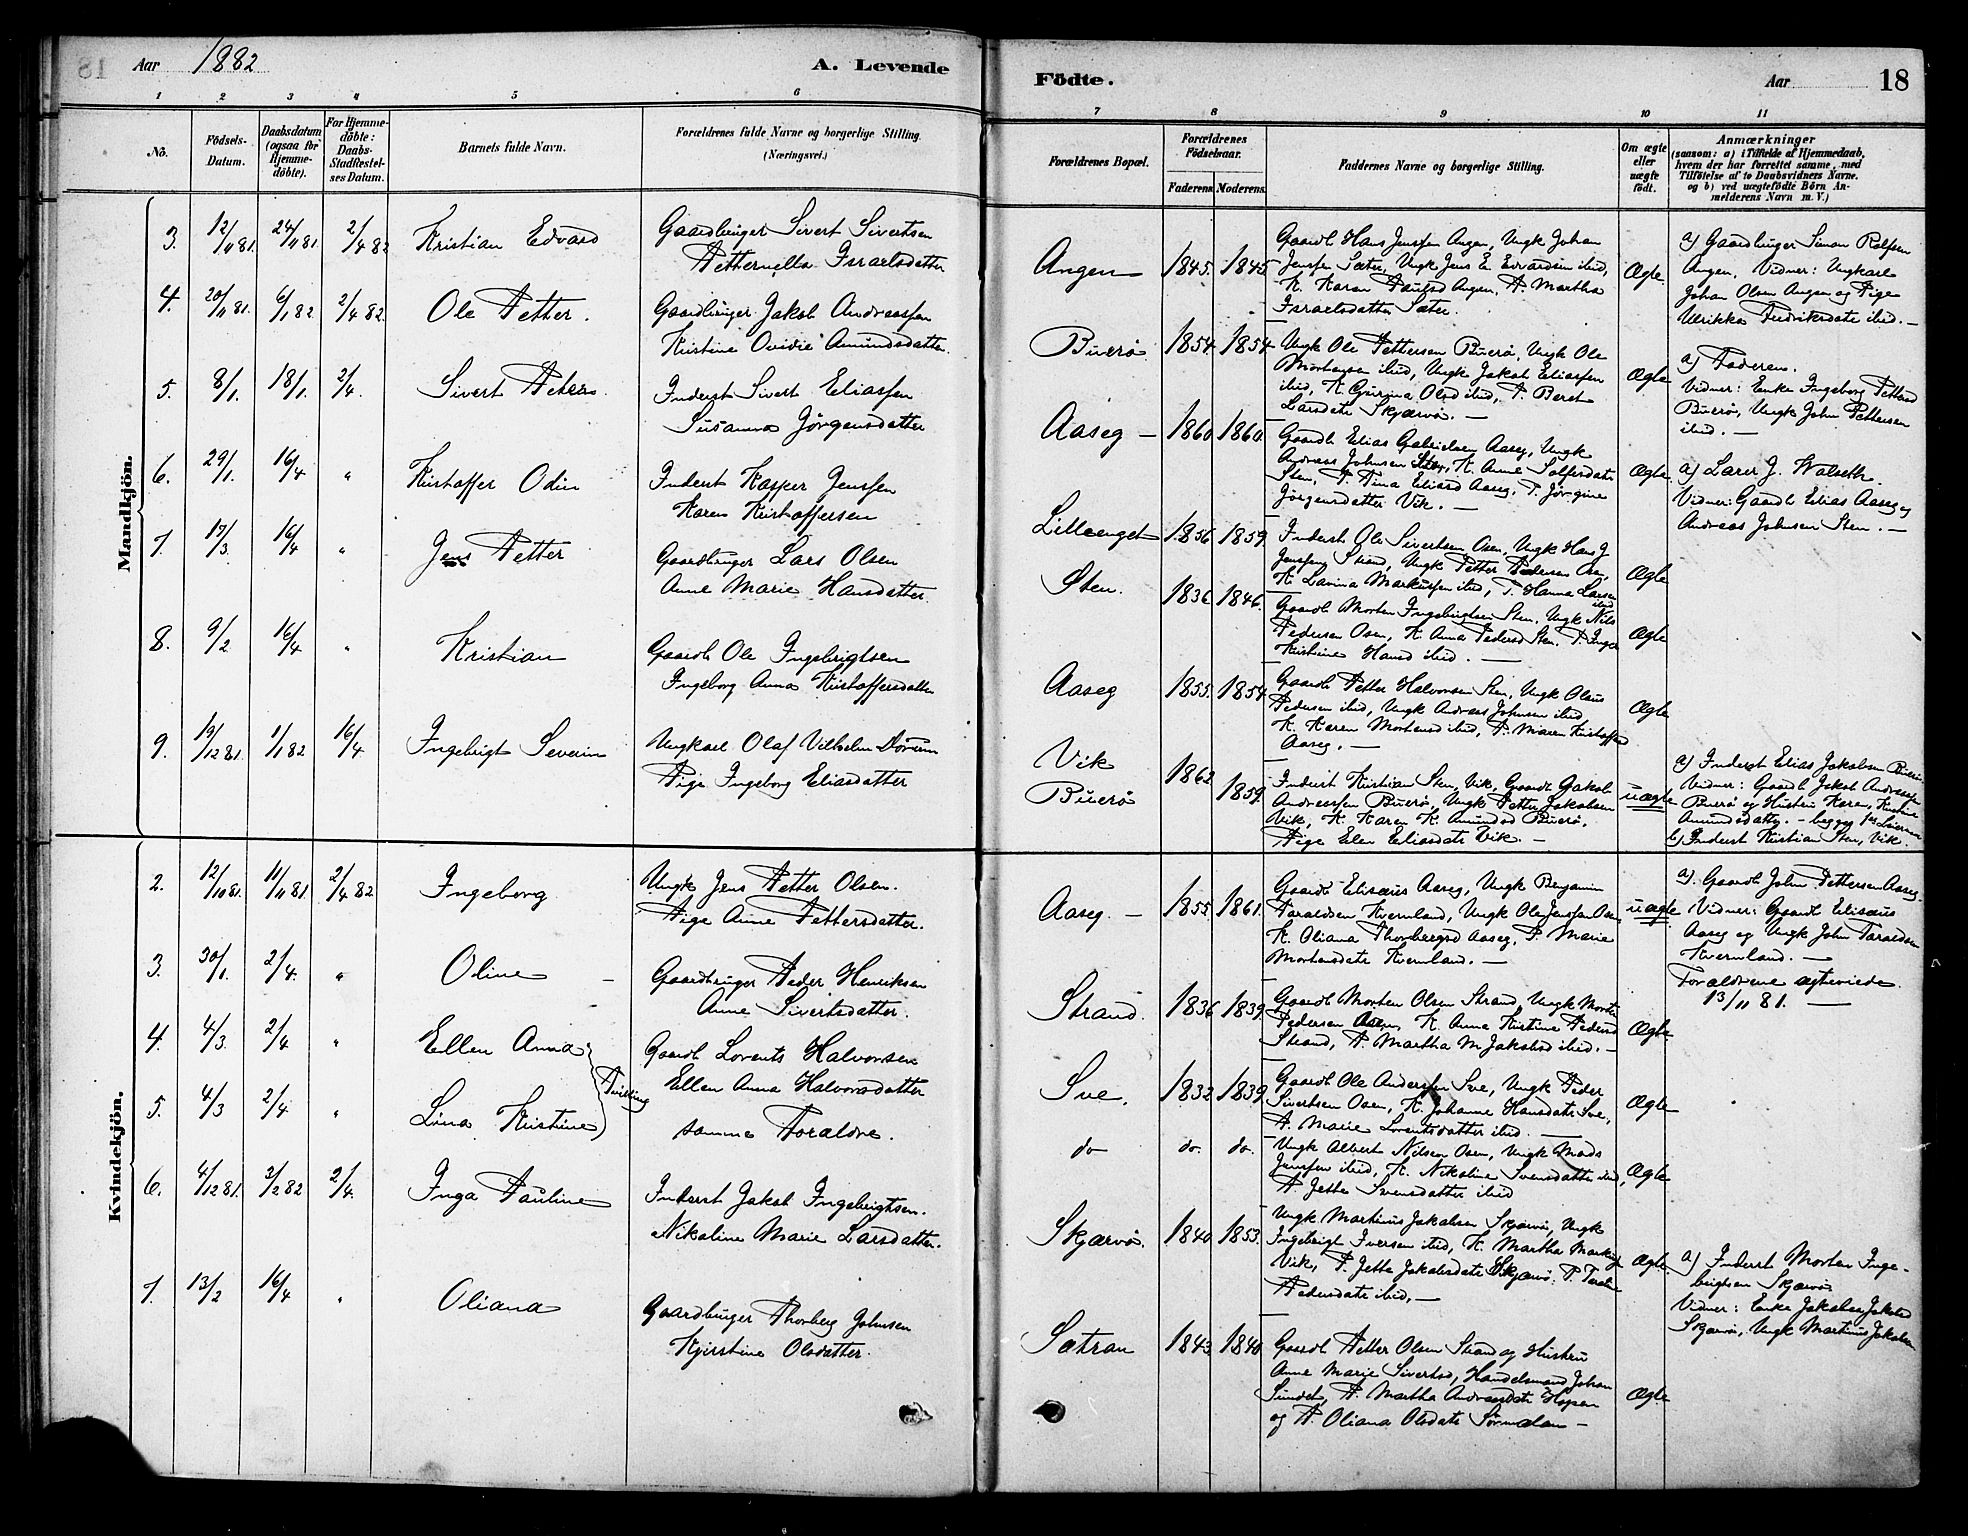 18
Aar 1882
A. Levende
1 2 3 4 5 6
No.
Födsels-Datum.
Daabsdatum (ogsaa för Hjemme-döbte).
For Hjemme-döbte: Daabs-Stadfestel-ses Datum.
Barnets fulde Navn.
Forældrenes fulde Navne og borgerlige Stilling.
(Næringsvei.)
Mandkjön.
3. 12/11 81. 24/11 81. 2/4 82 Kristian Edvard Gaardbruger Sivert Sivertsen
Petternella Israelsdatter
4. 20/11 81. 6/1 82 2/4 82. Ole Petter. Gaardbruger Jakob Andreassen
Kristine Ovidie Amundsdatter.
5. 8/1. 18/1. 2/4. Sivert Peter Inderst Sivert Eliassen
Susanna Jörgensdatter
6. 29/1. 16/4 " Kristoffer Odin Inderst Kasper Jenssen
Karen Kristoffersen
7. 17/3. 16/4 " Jens Petter Gaardbruger Lars Olsen
Anne Marie Hansdatter.
8. 9/2 16/4 " Kristian Gaardb Ole Ingebrigtsen
Ingeborg Anna Kristoffersdatter
9. 19/12 81. 1/1 82 16/4 Ingebrigt Severin Ungkarl Olaf Vilhelm
Pige Ingeborg Eliasdatter
Kvindekjön.
2. 12/10 81. 11/11 81. 2/4 82 Ingeborg Ungk Jens Petter Olsen.
Pige Anne Pettersdatter.
3. 30/1. 2/4. " Oline – Gaardbruger Peder Henriksen
Anne Sivertsdatter.
4. 4/3. 2/4 " Ellen Anna Gaardb Lorents Halvorsen
Ellen Anna Halvorsdatter
Tvilling
5. 4/3 2/4 " Lina Kristine samme Forældre.
6. 4/12 81. 3/2 82 2/4. Inga Pauline Inderst Jakob Ingebrigtsen.
Nikoline Marie Larsdatter.
7. 13/2 16/4 " Oliana Gaardbruger Thorberg Johnsen
Kjirstine Olsdatter.
Födte.
Aar 18
7 8 9 10 11
Forældrenes Bopæl.
Forældrenes Födselsaar.
Faderens. Moderens.
Faddernes Navne og borgerlige Stilling.
Om ægte eller uægte födt.
Anmærkninger
(saasom: a) i Tilfælde af Hjemmedaab, hvem der har forrettet samme, med Tilföielse af to Daabsvidners Navne, og b) ved uægtefödte Börn An-melderens Navn m. V.)
Angen 1845. 1845. Ægte
Gaardb Hans Jenssen Angen, Ungk Johan
Jenssen Sæter, Ungk Jens E Edvardsen ibid,
K. Karen Paulsd Angen, P. Martha
Israelsdatter Sæter.
a) Gaardbruger Simon Rolfsen
Angen, Vidner: Ungkarl
Johan Olsen Angen og Pige
Ulrikka Fredriksdatr ibid. –
Buerö 1854. 1854. Ægte
Ungk Ole Pettersen Buerö, Ungk Ole
Mortensen ibid, Ungk Jakob Eliassen
ibid, K. Gurina Olsd ibid, P. Beret
Larsdatr Skjærvö. –
a) Faderen.
Vidner: Enke Ingeborg Pettersd
Buerö, Ungk John Pettersen
ibid. –
Aaseg – 1860. 1860. Ægte
Gaardb Elias Gabrielsen Aaseg, Ungk
Andreas Johnsen Sten, K. Anne
Sten, P. Tina Eliasd Aaseg, P. Jörgine
Jörgensdatter Vik. –
a) Lærer J. Walseth.
Vidner: Gaardb Elias Aaseg og
Andreas Johnsen Sten. –
Lilleenget 1856 1859. Ægte
Inderst Ole Sivertsen Osen, Ungk Hans J
Jenssen Strand, Ungk Petter Pedersen Osen,
K. Lavina Markussen ibid, P. Hanna Larsen
ibid
Sten. 1836. 1846. Ægte
Gaardb Morten Ingebrigtsen Sten, Ungk Nils
Pedersen Osen, K. Anna Pedersd Sten. P. Inger
Kristine Hansd ibid. –
Aaseg 1855. 1854. Ægte
Gaardb Petter Halvorsen Sten, Ungk Olaus
Pedersen ibid, Ungk Andreas Johnsen ibid
K. Karen Mortensd ibid, P. Maren Kristoffersd
Aaseg. –
Vik 1862
Buerö 1859. uægte
Inderst Kristian Sten, Vik, Gaardb Jakob
Andreassen Buerö, Ungk Petter Jakobsen
Vik, K. Karen K. Amundsd Buerö.
Pige Elen Eliasdatr Vik. –
a) Inderst Elias Jakobsen Buerö
Vidner: Gaardb Jakob Andreassen
Buerö og Hustru Karen Kristine
Amundsdatter. – begges 1ste
b) Inderst Kristian Sten, Vik.
Aaseg. – 1855. 1861. uægte
Gaardb Elisæus Aaseg, Ungk Benjamin
Taraldsen Kvernland, Ungk Ole Jenssen Osen
K. Oliana Thorbergsd Aaseg, P. Marie
Mortensdatr Kvernland. –
a). Gaardb John Pettersen Aaseg.
Vidner: Gaardb Elisæus
Aaseg og Ungk John Taraldsen
Kvernland. –
Forældrene ægteviede
13/11 81. –
Strand. 1836 1839. Ægte
Gaardb Morten Olsen Strand, Ungk Morten
Pedersen Osen, K. Anna Kristine Pedersd
Strand, P. Martha M Jakobsd ibid. –
Sve. 1832 1839. Ægte
Gaardb Ole Anderssen Sve, Ungk Peder
Sivertsen Osen, K. Johanne Hansdatr Sve,
P. Marie Lorentsdatter ibid. –
do do. do. Ægte
Ungk Albert Nilsen Osen, Ungk Mads
Jenssen ibid, K. Nikoline Svensdatter ibid,
P. Jette Svensdatter ibid
Skjærvö. 1840 1853. Ægte.
Ungk Martinus Jakobsen Skjærvö, Ungk
Ingebrigt Iversen ibid, K. Martha
Vik, P. Jette Jakobsdatr Skjærvö. P.
Pedersdatr ibid. –
a) Inderst Morten Inge-
brigtsen Skjærvö
Vidner: Enke Jakobea Jakobsd
Skjærvö, Ungk Martinus Jakobsen
Sætran 1843. 1840. Ægte
Gaardb Petter Olsen Strand og Hustru
Anne Marie Sivertsd, Handelsmand Johan
Sundet, P. Martha Andreasdatr Hopen
og P. Oliana Olsdatr Sörmelan –